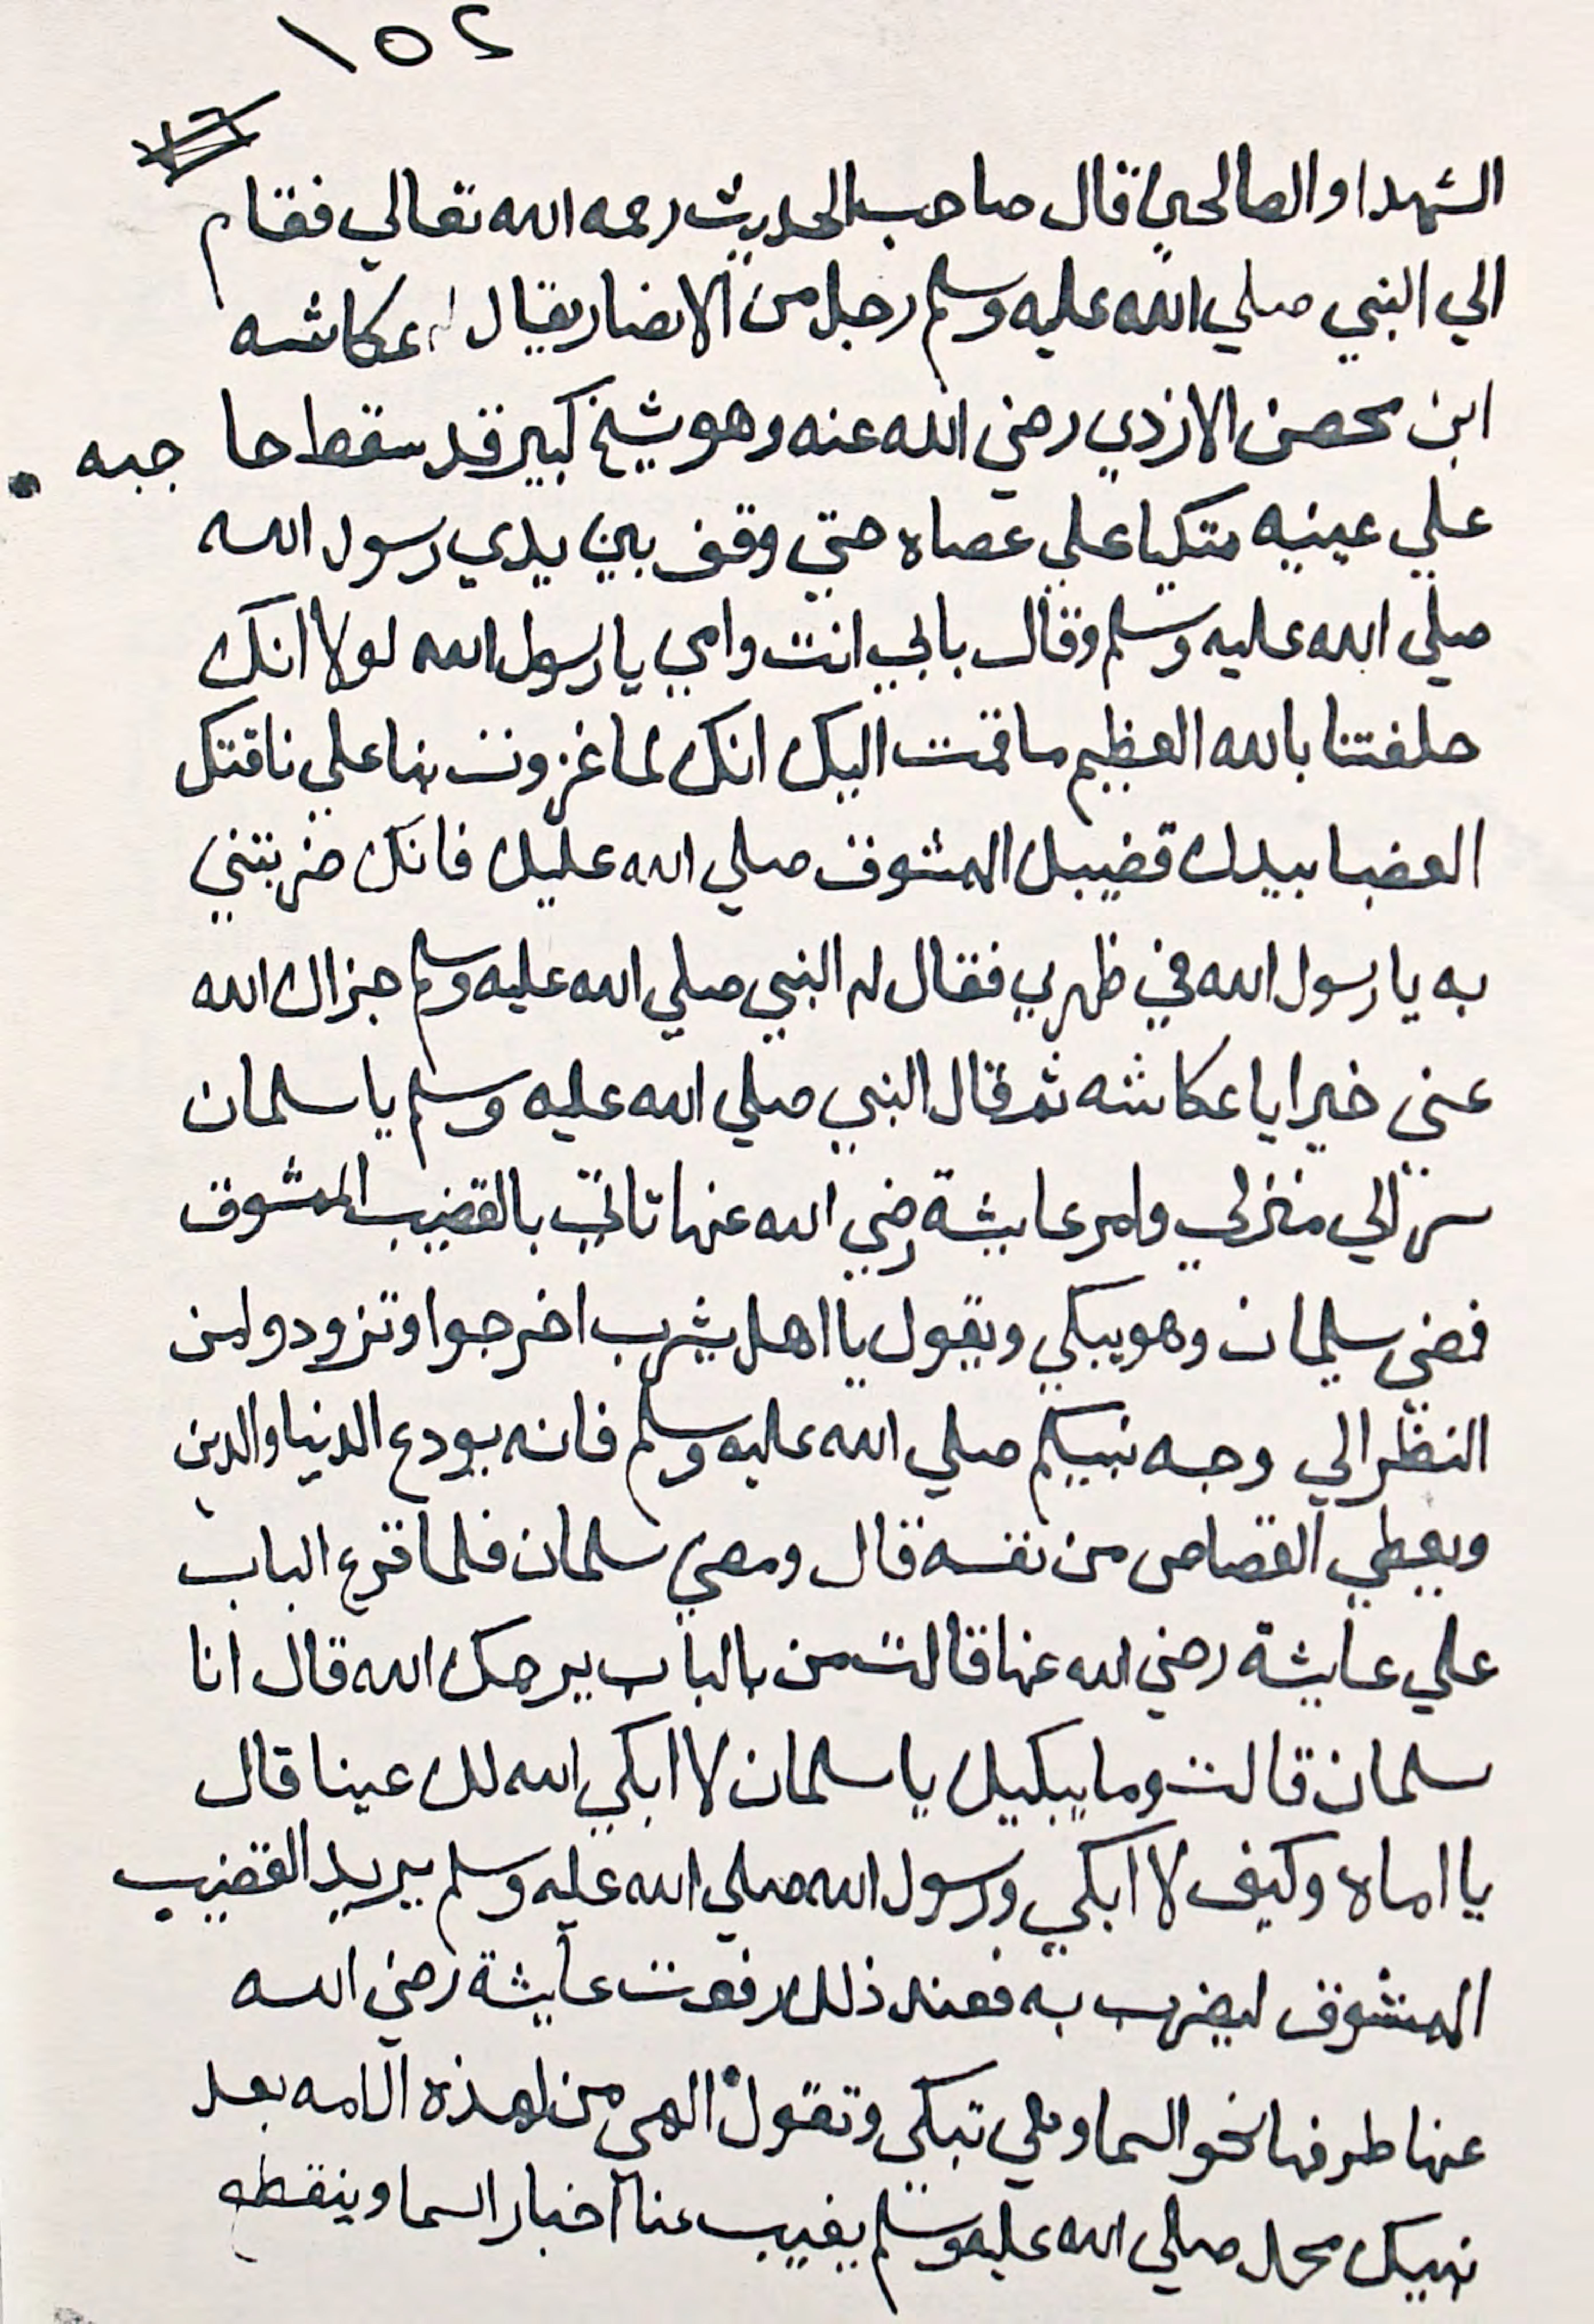 ١٥٢
الشهدا والصالحين قال صاحب الحديث رحمه الله تعالي فقام
الي النبي صلي الله عليه وسلم رجل من الانصار يقال له عكاشه
ابن محصن الازدي رضي الله عنه وهو شيخ كبير قد سقط حا جبه
علي عينيه متكيا علي عصاه حتي وقف بين يدي رسول الله
صلي الله عليه وسلم وقال بابي انت وامي يا رسول الله لولا انك
حلفتنا بالله العظيم ما قمت اليك انك لما غزوت بنا علي ناقتك
العضبا بيدك قضيبك الممشوق صلي الله عليك فانك ضربتني
به يا رسول الله في ظهري فقال له النبي صلي الله عليه وسلم جزاك الله
عني خيرا يا عكاشه ثم قال النبي صلي الله عليه وسلم يا سلمان
سر الي منزلي وامر عايشة رضي الله عنها تاتي بالقضيب الممشوق
فمضي سلمان وهو يبكي ويقول يا اهل يثرب اخرجوا وتزودوا من
النظر الي وجه نبيكم صلي الله عليه وسلم فانه يودع الدنيا والدين
ويعطي القصاص من نفسه قال ومضي سلمان فلما قرع الباب
علي عايشة رضي الله عنها قالت من بالباب يرحمك الله قال انا
سلمان قالت وما يبكيك يا سلمان لا ابكي الله لك عينا قال
يا اماه وكيف لا ابكي ورسول الله صلي الله عليه وسلم يريد القضيب
الممشوق ليضرب به فعند ذلك رفعت عايشة رضي الله
عنها طرفها نحو السما وهي تبكي وتقول الهي من لهذه الامه بعد
نبيك محمد صلي الله عليه وسلم يغيب عنا اخبار السما وينقطع